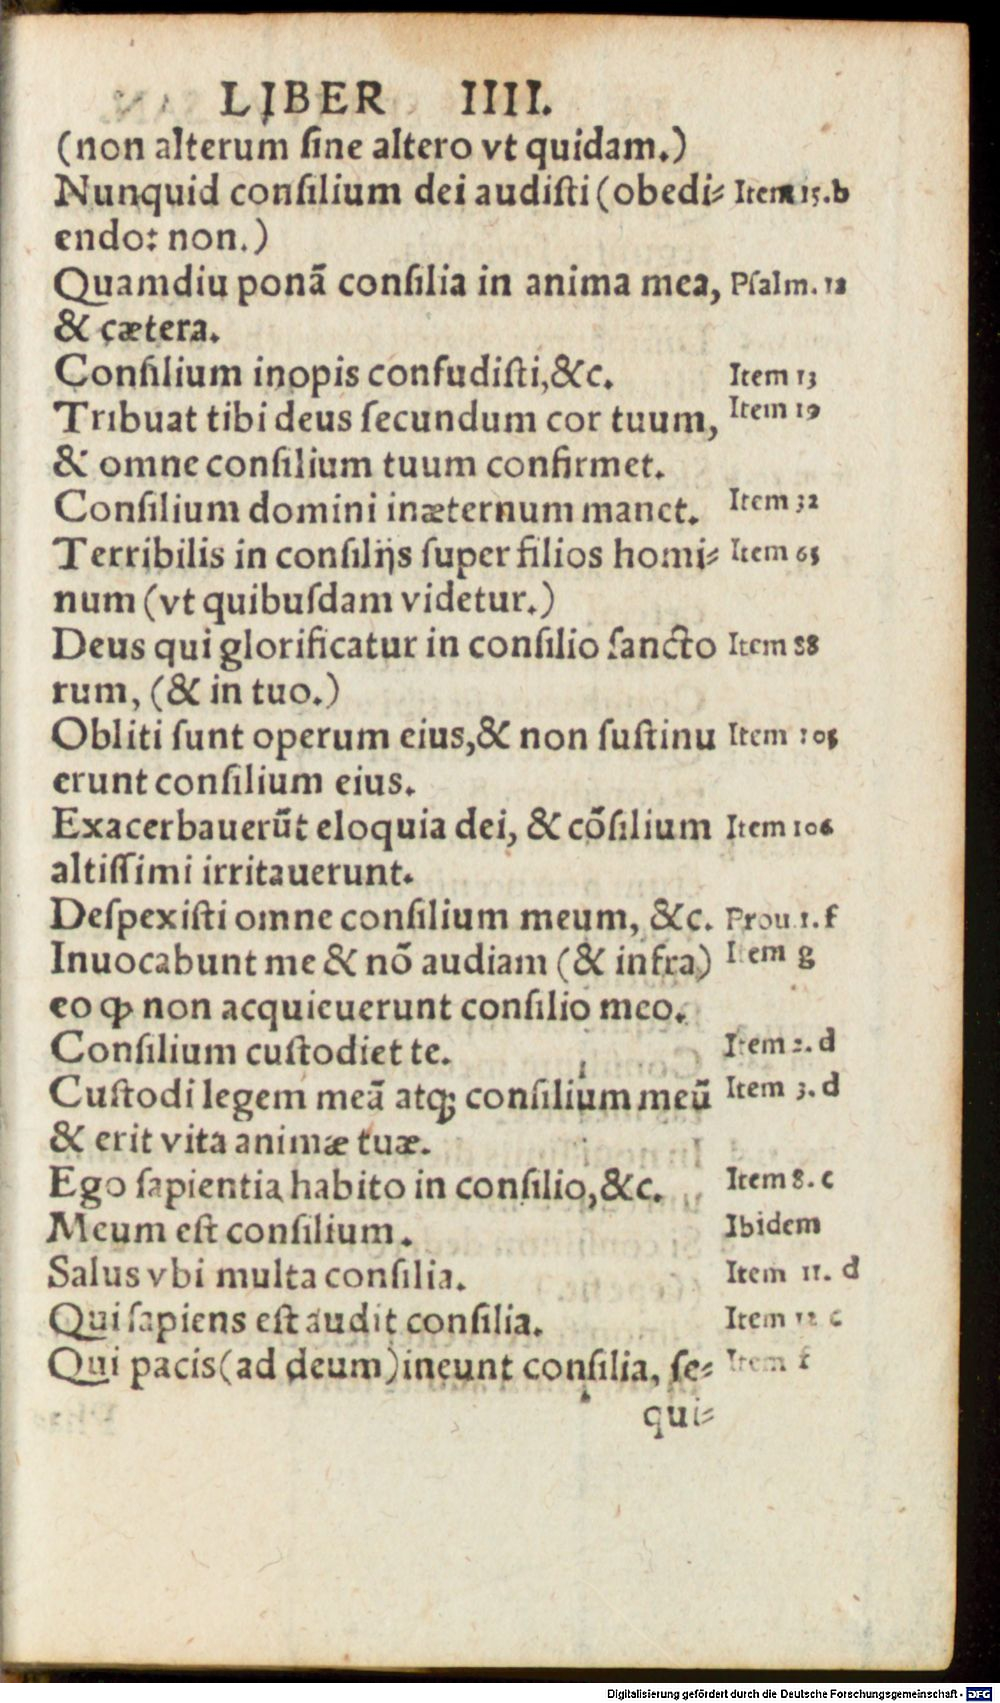 LIBER IIII.
(non alterum ſine altero vt quidam.)
Nunquid conſilium dei audiſti (obedi⸗ Item 15.b
endo: non.)
Quamdiu ponã conſilia in anima mea, Pſalm. 12
& cætera.
Conſilium inopis confudiſti,&c. Item 13
Tribuat tibi deus ſecundum cor tuum, Item 19
& omne conſilium tuum confirmet.
Conſilium domini inæternum manet. Item 32
Terribilis in conſilijs ſuper filios homi⸗ Item 65
num (vt quibuſdam videtur.)
Deus qui glorificatur in conſilio ſancto Item 88
rum, (& in tuo.)
Obliti ſunt operum eius,& non ſuſtinu Item 105
erunt conſilium eius.
Exacerbauerũt eloquia dei, & cõſilium Item 106
altiſſimi irritauerunt.
Deſpexiſti omne conſilium meum, &c. Prou.1.f
Inuocabunt me & nõ audiam (& infra) Item g
eo ꝙ non acquieuerunt conſilio meo.
Conſilium cuſtodiet te. Item 2. d
Cuſtodi legem meã atq; conſilium meũ Item 3. d
& erit vita animæ tuæ.
Ego ſapientia habito in conſilio,&c. Item 8. c
Meum eſt conſilium. Ibidem
Salus vbi multa conſilia. Item 11. d
Qui ſapiens eſt audit conſilia. Item 12 c
Qui pacis(ad deum)ineunt conſilia, ſe⸗ Item f
qui⸗
Digitalisierung gefördert durch die Deutsche Forschungsgemeinschaft - DFG